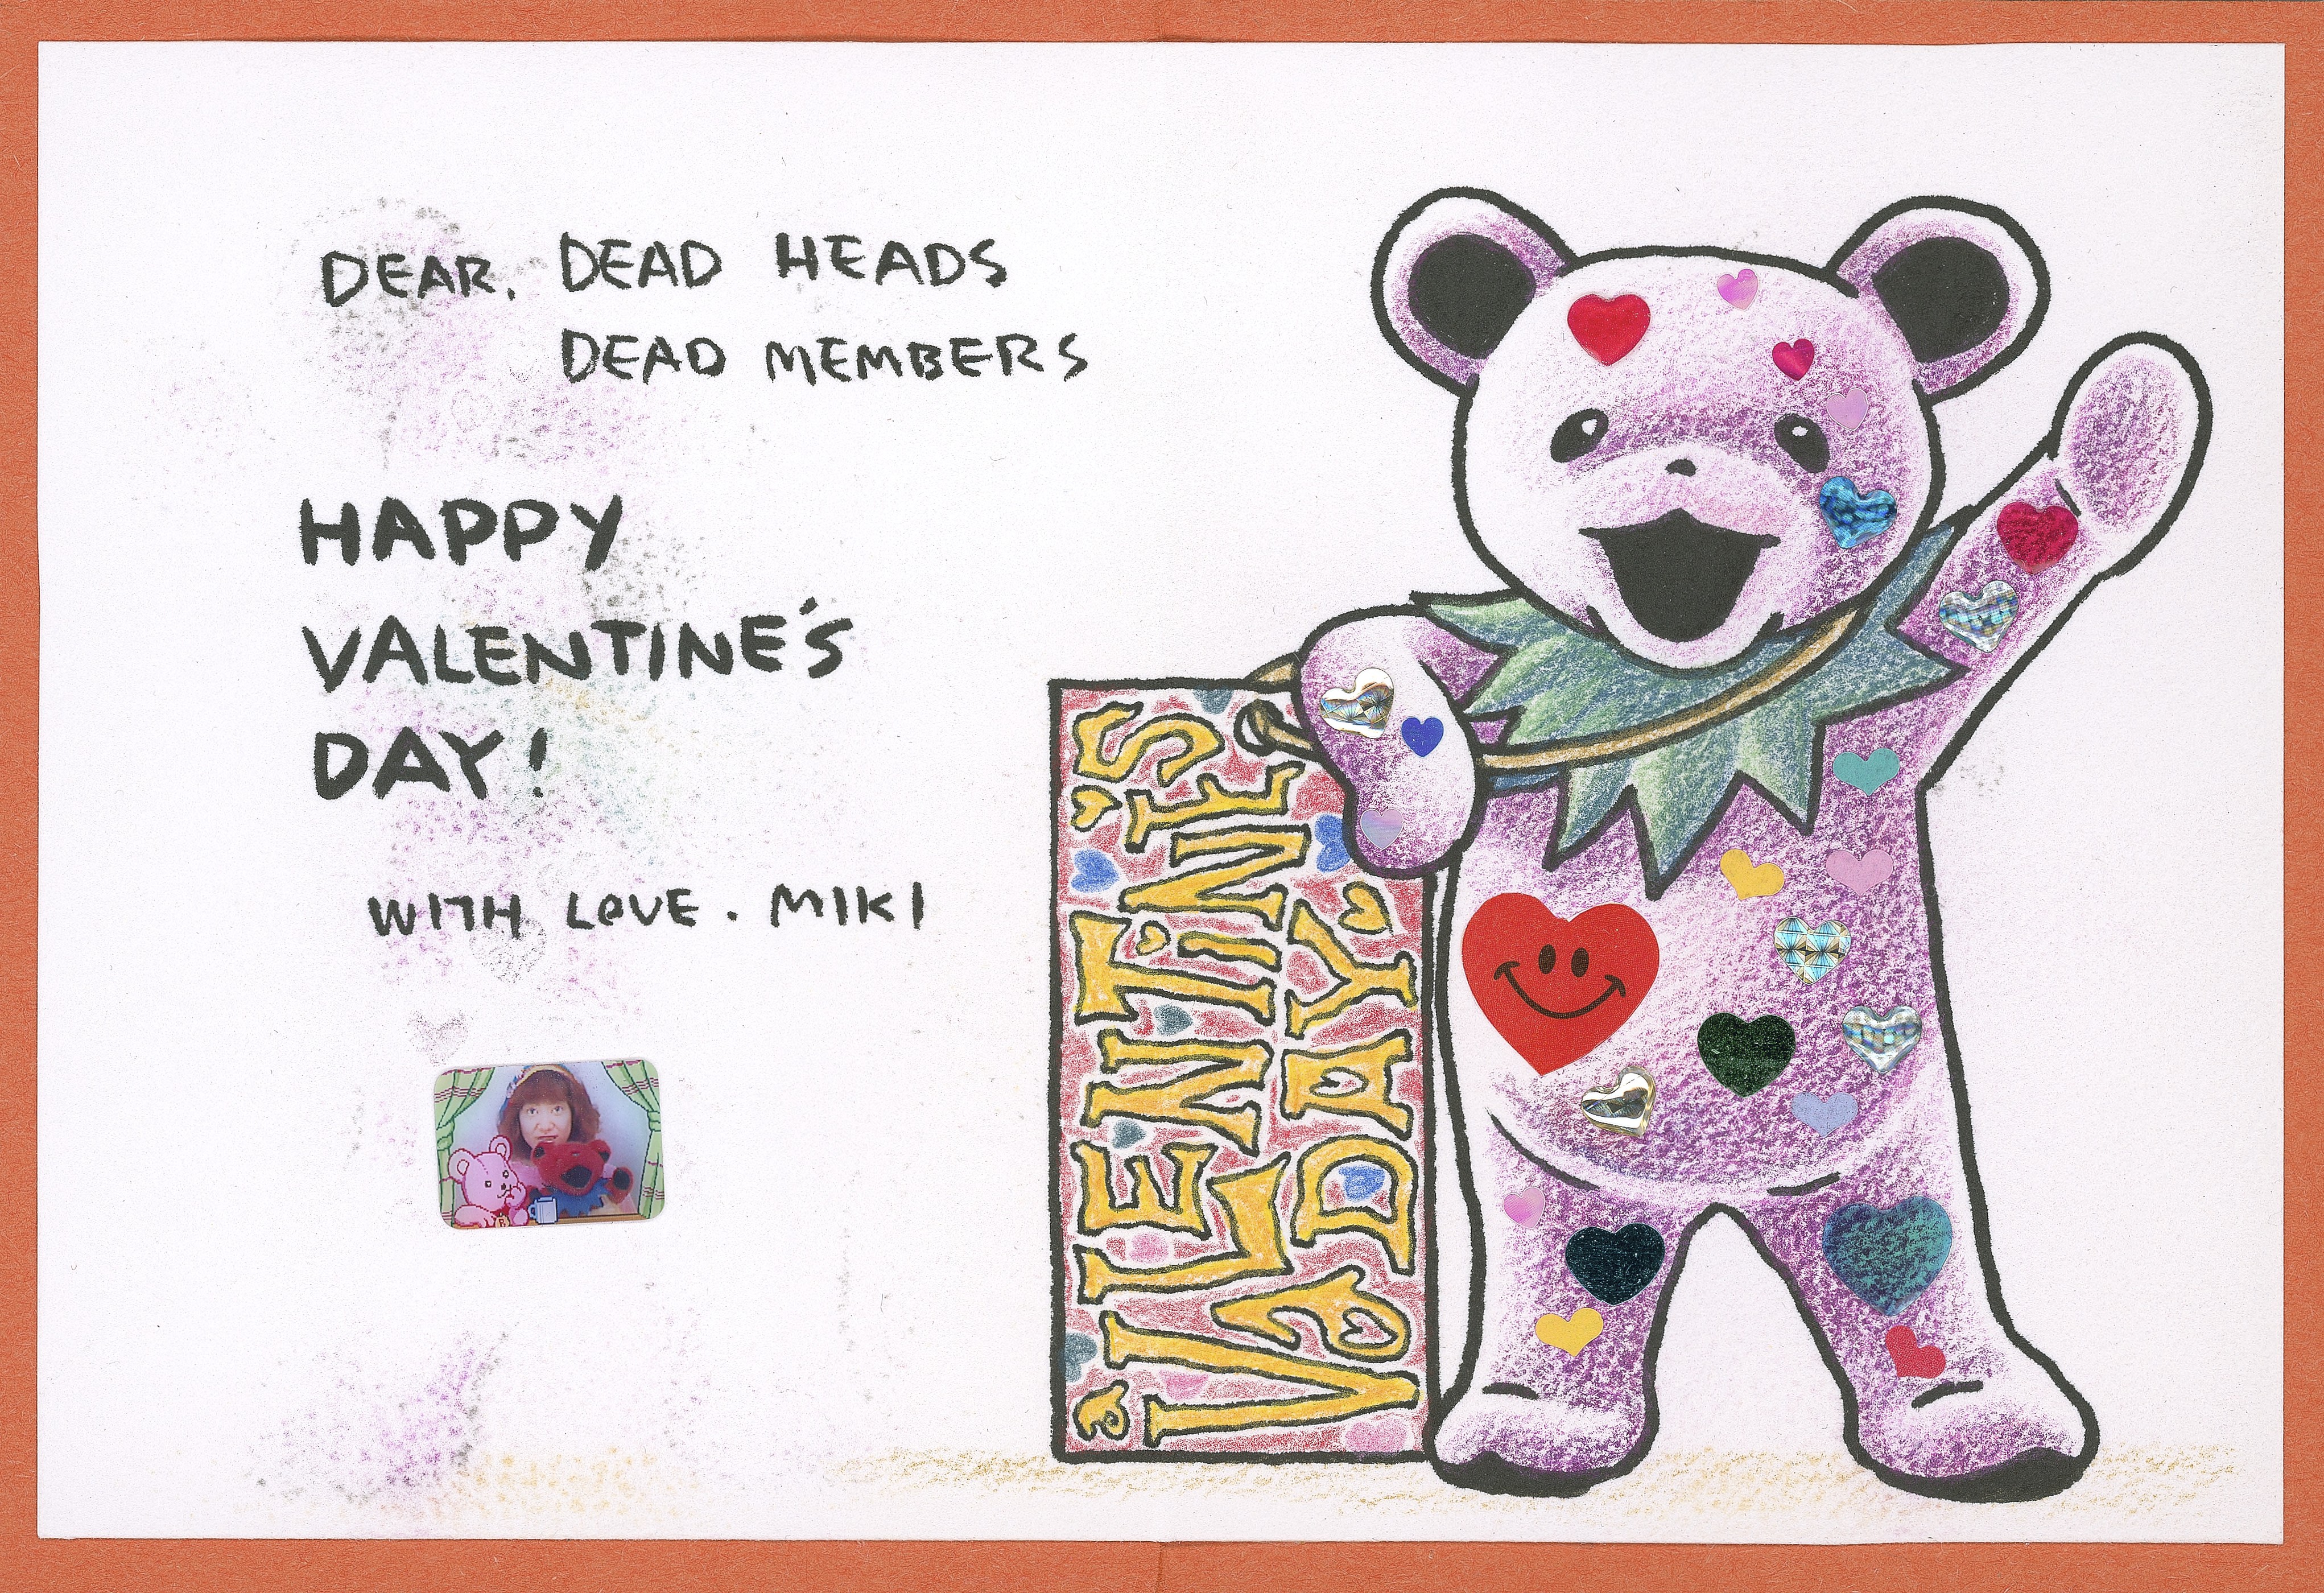 DEAR. DEAD HEADS
DEAD MEMBERS
HAPPY
VALENTINE'S
DAY!
WITH LOVE. MIKI
VALENTINE'S
DAY